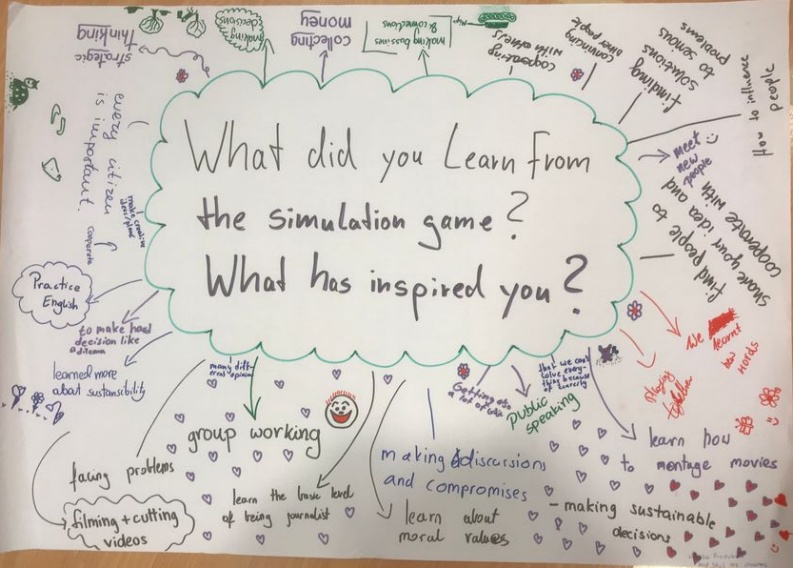 What did you Learn from
the simulation game?
What has inspired you?
strategic
thinking
making
decisions
collecting
money
making bussines
& connections
cooperating
with others
convincing
other people
findinng
solutions
to serious
problems
How to influence
people
meet
new
people
find people to
share your idea and
cooperate with
We learnt
new
words
playing
together
learn how
to montage movies
- making sustainable
decisions
that we can't
solve every-
thing because
of scarcity
public
speaking
Getting also
a lot of
making discursions
and compromises
learn about
moral values
learn the basic level
of being journalist
many diff-
rent opinion
group working
facing problems
filming + cutting
videos
learned more
about sustanscibility
to make hard
decision like
a dilema
Practice
English
every citizen
is important.
cooperate
make creative